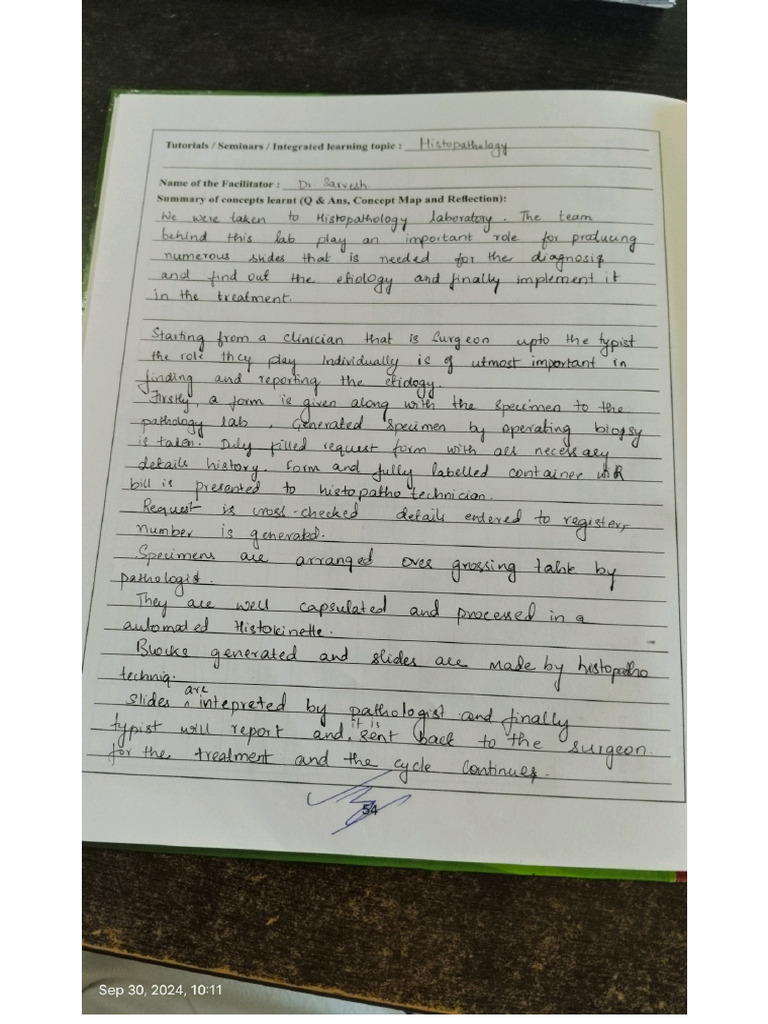 Tutorials / Seminars / Integrated learning topic : Histopathology
Name of the Facilitator : Dr Sarvesh.
Summary of concepts learnt (Q & Ans, Concept Map and Reflection):
We were taken to Histopathology laboratory. The team
behind this lab play an important role for producing
numerous slides that is needed for the diagnosis
and find out the etiology and finally implement it
in the treatment.
Starting from a clinician that is Surgeon upto the typist
the role they play Individually is of utmost important in
finding and reporting the etiology.
Firstly, a form is given along with the specimen to the
pathology lab, Generated Specimen by operating biopsy
is taken. Duly filled request form with all necessary
details history. Form and fully labelled container
bill is presented to histopatho technician.
Request is cross-checked details entered to register,
number is generated.
Specimens are arranged over grossing table by
pathologist.
They are well capsulated and processed in a
automated Histokinette.
Blocks generated and slides are made by histopatho
techniq.
Slides are intepreted by pathologist and finally
typist will report and it is sent back to the surgeon
for the treatment and the cycle continues.
54
Sep 30, 2024, 10:11